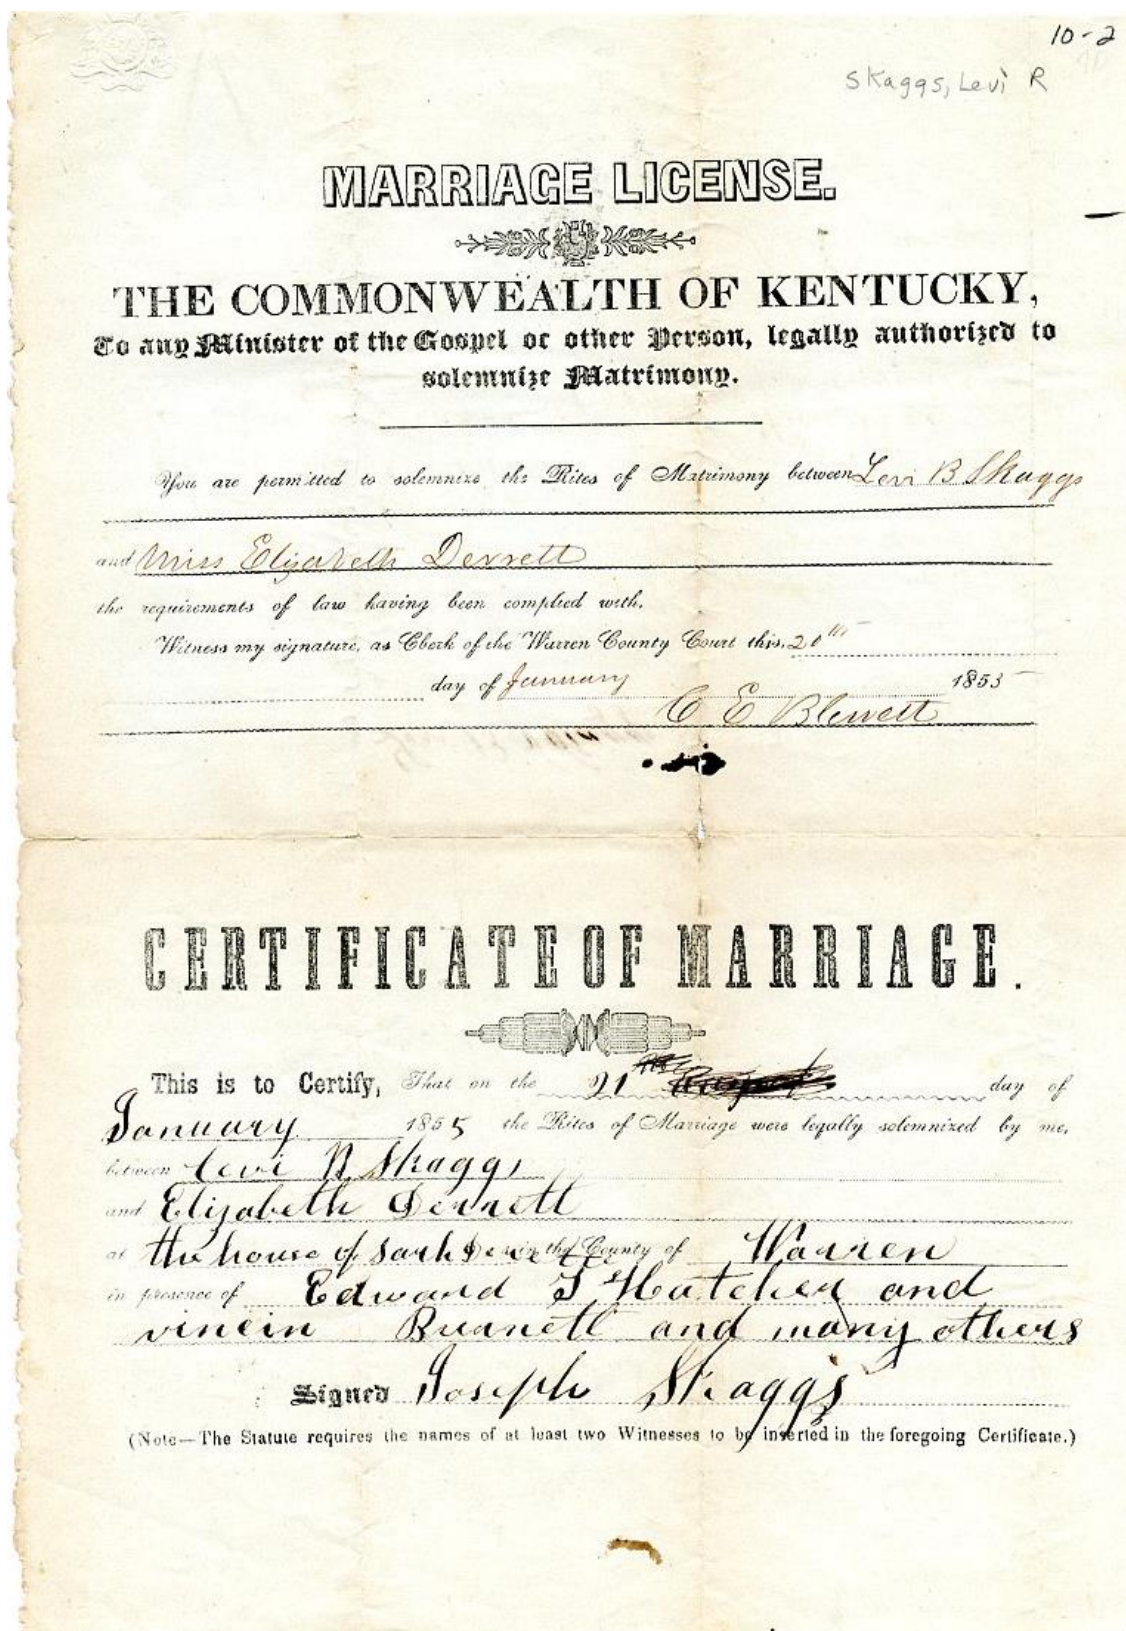 10-2
Skaggs, Levi R
MARRIAGE LICENSE.
THE COMMONWEALTH OF KENTUCKY,
To any Minister of the Gospel or other Person, legally authorized to
solemnize Matrimony.
You are permitted to solemnize the Rites of Matrimony between Levi B Skaggs
and Miss Elizabeth Derrett
the requirements of law having been complied with.
Witness my signature, as Clerk of the Warren County Court this 20th
day of January 1855
C E Blewett
CERTIFICATE OF MARRIAGE.
This is to Certify, That on the 21 day of
January 1855 the Rites of Marriage were legally solemnized by me,
between Levi R Skaggs
and Elizabeth Derrett
at the house of in the County of Warren
in presence of Edward T Hatcher and
and many others
Signed Joseph Skaggs
(Note—The Statute requires the names of at least two Witnesses to be inserted in the foregoing Certificate.)